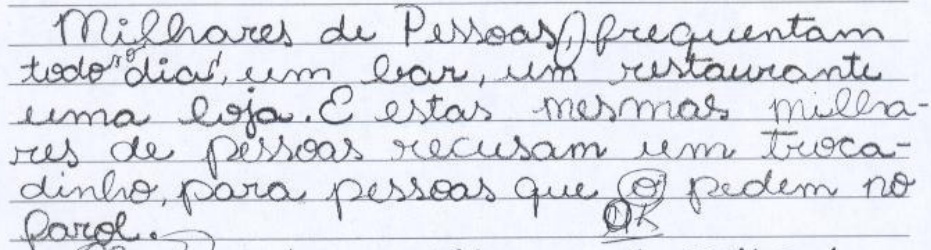 Milhares de Pessoas, frequentam
todo o dia, um bar, um restaurante
uma loja. E estas mesmas milha-
res de pessoas recusam um troca-
dinho, para pessoas que o pedem no
farol.
OK